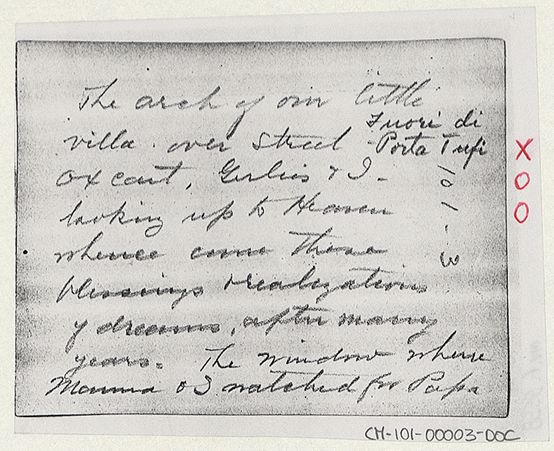 The arch of our little
villa over Street
Fuori di
Porta Tufi
Ox cart, & I -
looking up to Heaven
whence come these
blessings & realizations
of dreams, after many
years. The window where
Mamma & I watched for Papa
101-3
X
O
O
CM-101-00003-DOC